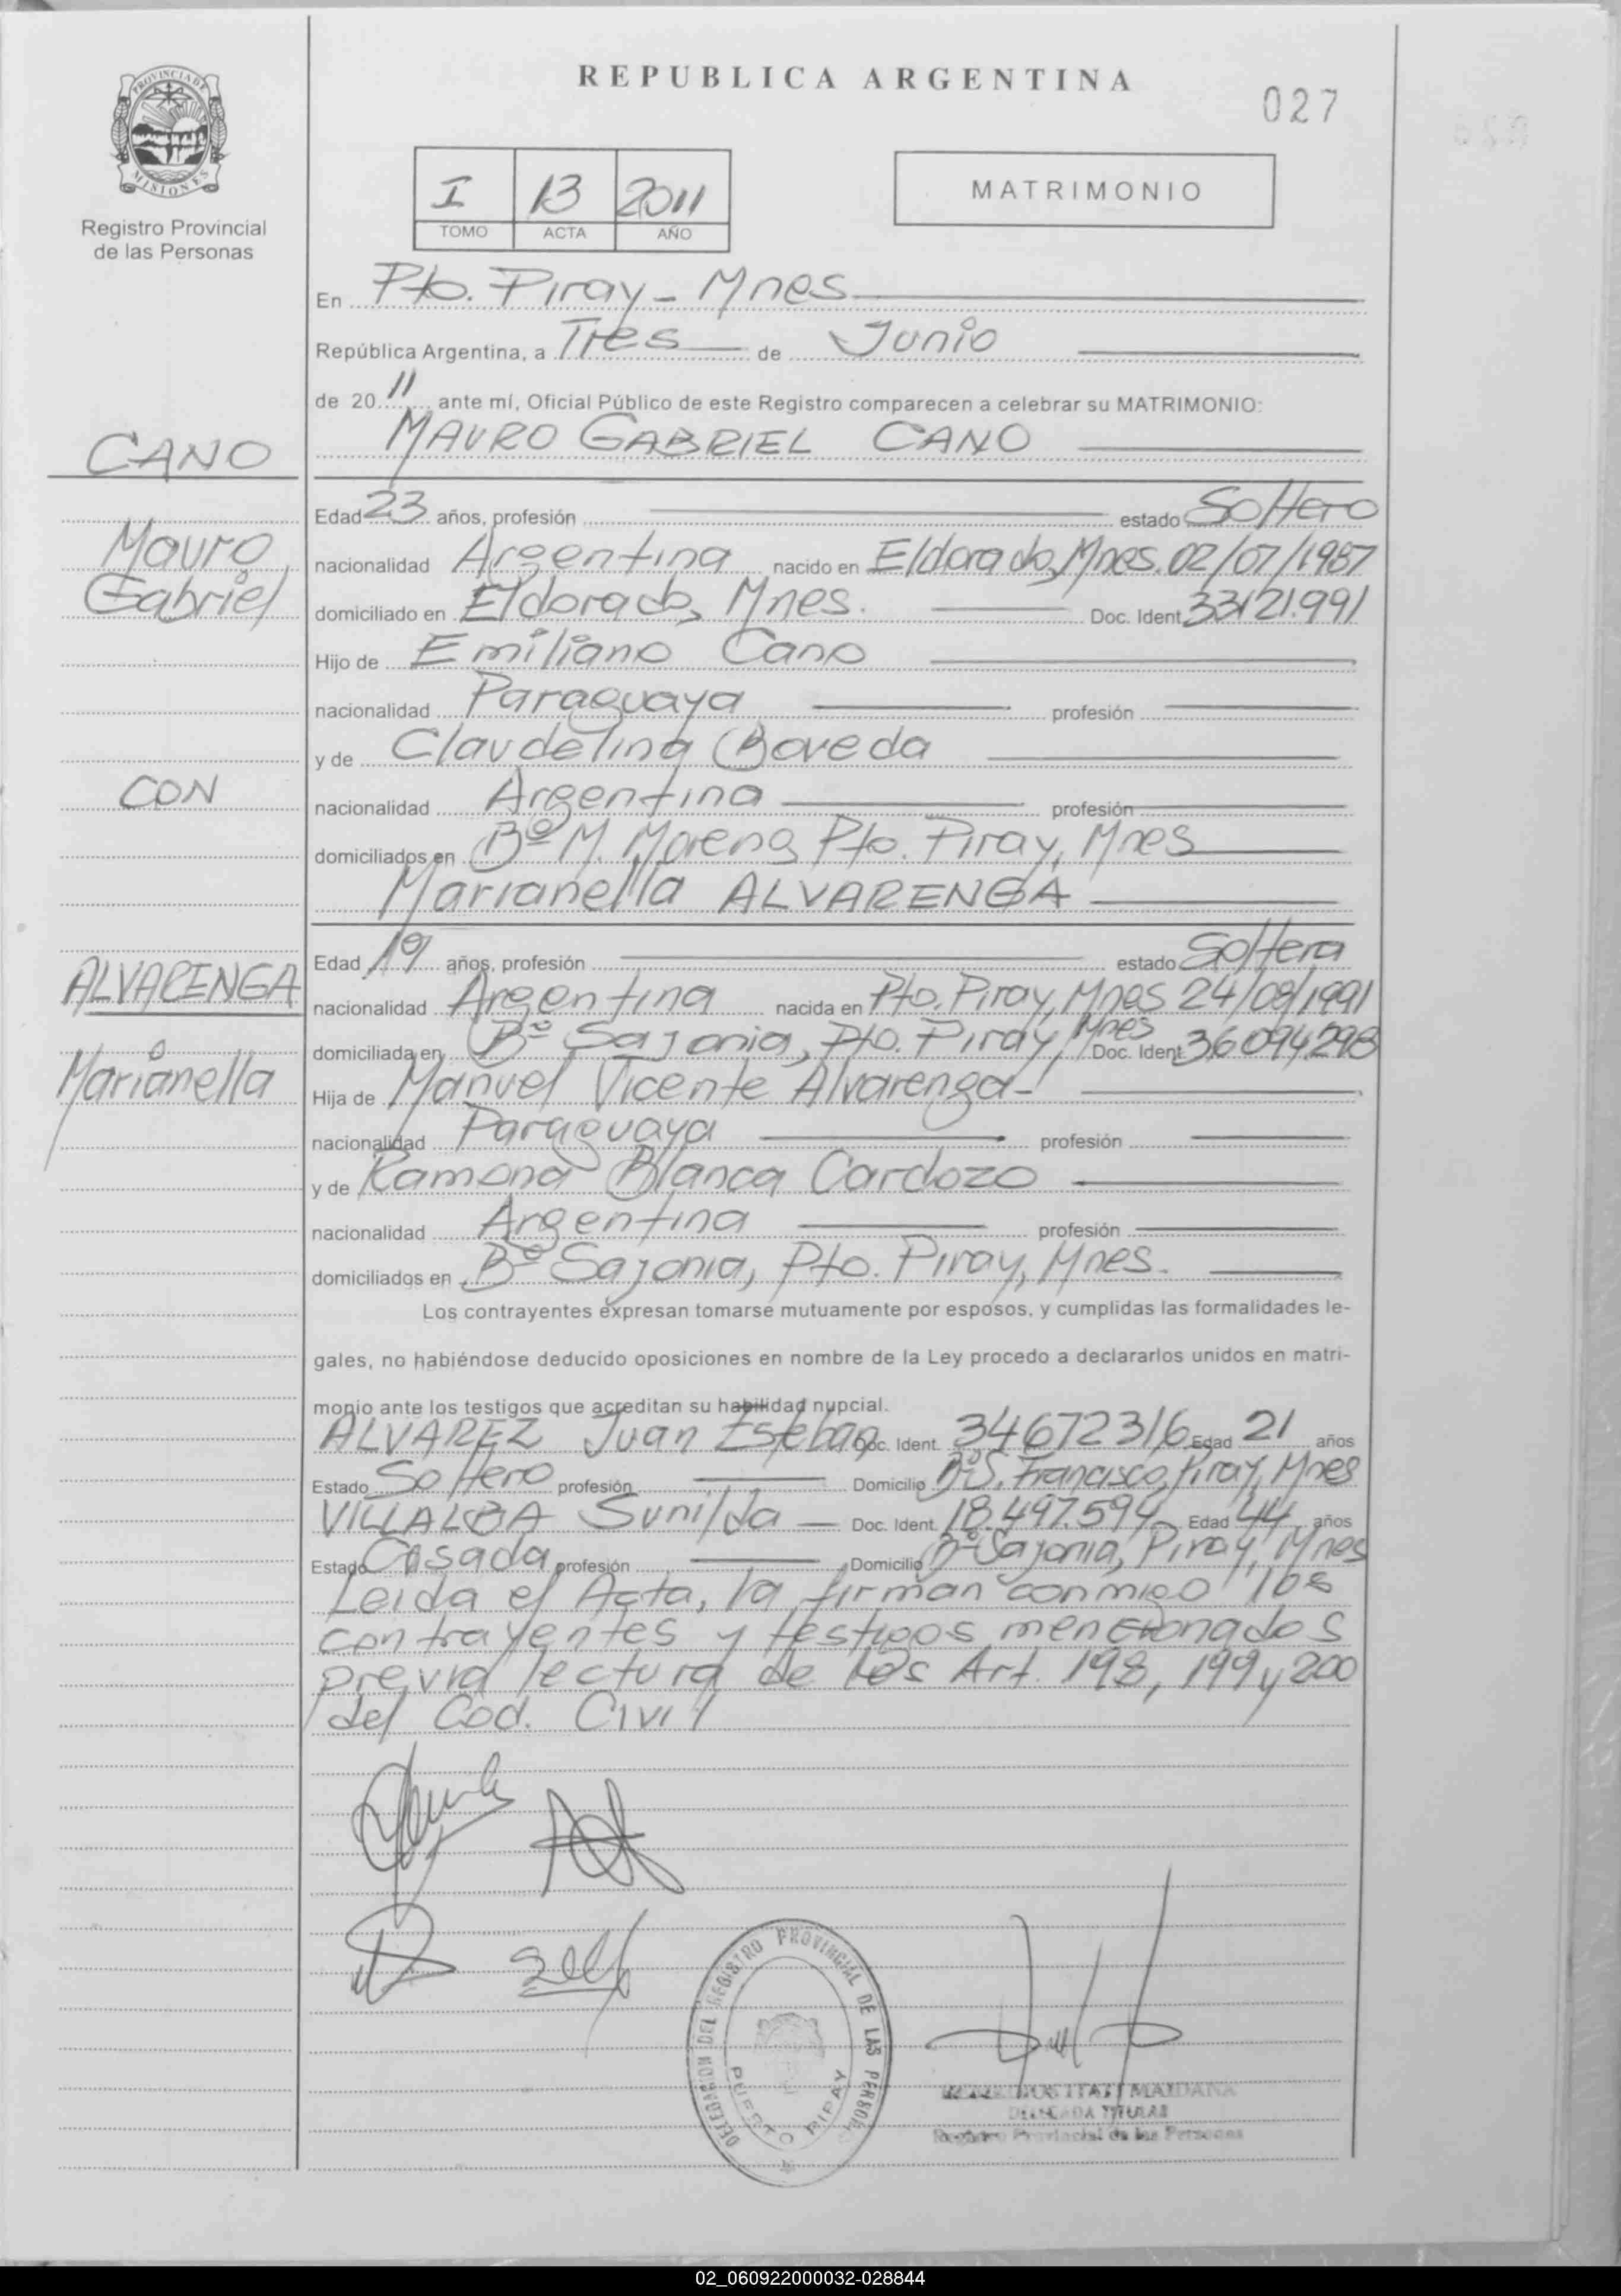 REPUBLICA ARGENTINA
027
PROVINCIA DE
MISIONES
Registro Provincial
de las Personas
I 13 2011
TOMO ACTA AÑO
MATRIMONIO
En Pto. Piray - Mnes
República Argentina, a Tres de Junio
de 20 11 ante mí, Oficial Público de este Registro comparecen a celebrar su MATRIMONIO:
MAURO GABRIEL CANO
CANO
Edad 23 años, profesión estado Soltero
Mauro
nacionalidad Argentina nacido en Eldorado, Mnes. 02/07/1987
Gabriel
domiciliado en Eldorado, Mnes. Doc. Ident 33121.991
Hijo de Emiliano Cano
nacionalidad Paraguaya profesión
y de Claudelina Boveda
CON
nacionalidad Argentina profesión
domiciliados en Bº M. Moreno Pto. Piray, Mnes
Marianella ALVARENGA
Edad 19 años, profesión estado Soltera
ALVARENGA
nacionalidad Argentina nacida en Pto. Piray, Mnes 24/08/1991
domiciliada en Bº Sajonia, Pto. Piray, Mnes Doc. Ident 36094.298
Marianella
Hija de Manuel Vicente Alvarenga-
nacionalidad Paraguaya profesión
y de Ramona Blanca Cardozo
nacionalidad Argentina profesión
domiciliados en Bº Sajonia, Pto. Piray, Mnes.
Los contrayentes expresan tomarse mutuamente por esposos, y cumplidas las formalidades le-
gales, no habiéndose deducido oposiciones en nombre de la Ley procedo a declararlos unidos en matri-
monio ante los testigos que acreditan su habilidad nupcial.
ALVAREZ Juan Esteban Doc. Ident. 34672316 Edad 21 años
Estado Soltero profesión Domicilio Bº S. Francisco, Piray, Mnes
VILLALBA Sunilda — Doc. Ident. 18.497.594 Edad 44 años
Estado Casada profesión Domicilio Bº Sajonia, Piray, Mnes
Leida el Acta, la firman conmigo los
contrayentes y testigos mencionados
previa lectura de los Art. 198, 199 y 200
del Cod. Civil
DELEGACION DEL REGISTRO PROVINCIAL DE LAS PERSONAS
PUERTO PIRAY
ITATI MAIDANA
DELEGADA TITULAR
Registro Provincial de las Personas
02_060922000032-028844